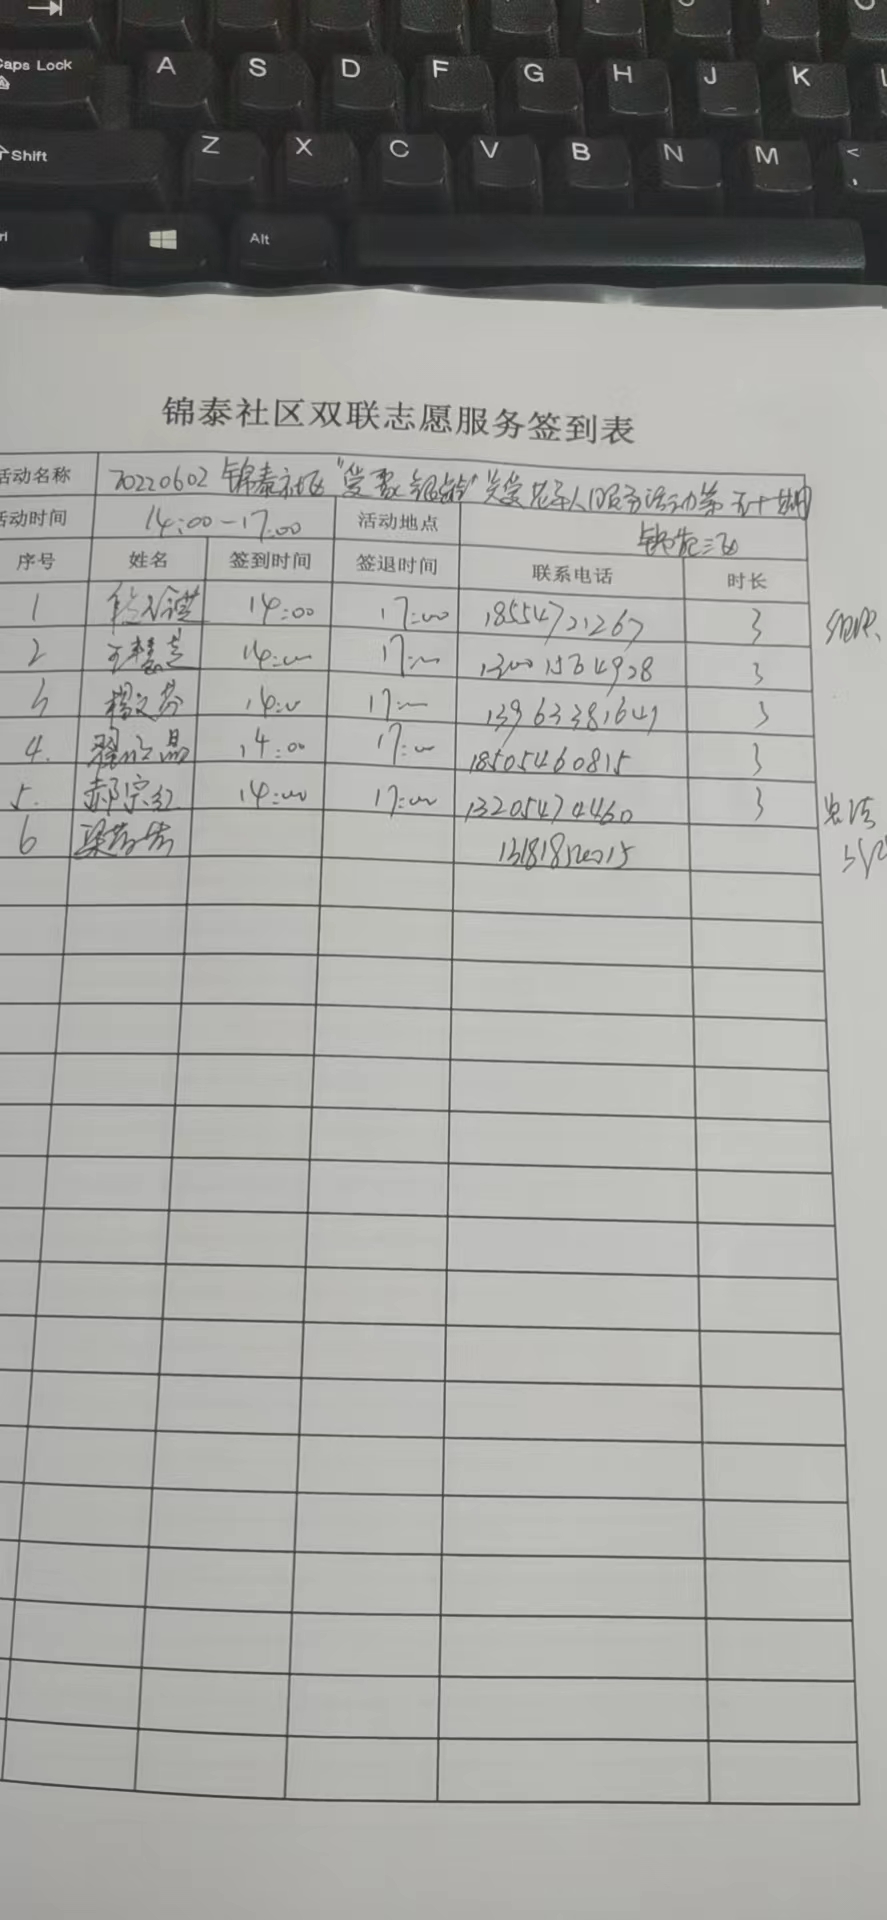 Caps Lock A S D F G H J K L
Shift Z X C V B N M <
,
Alt
锦泰社区双联志愿服务签到表
活动名称 20220602 锦泰社区“爱聚银龄”关爱老年人服务活动第五十期
活动时间 14:00-17:00 活动地点 锦苑三区
序号 姓名 签到时间 签退时间 联系电话 时长
1 14:00 17:00 18554721267 3
2 14:00 17:00 3
3 杨文芬 14:00 17:00 13963381641 3
4. 14:00 17:00 18505460815 3
5. 郝宗红 14:00 17:00 13205474460 3
6